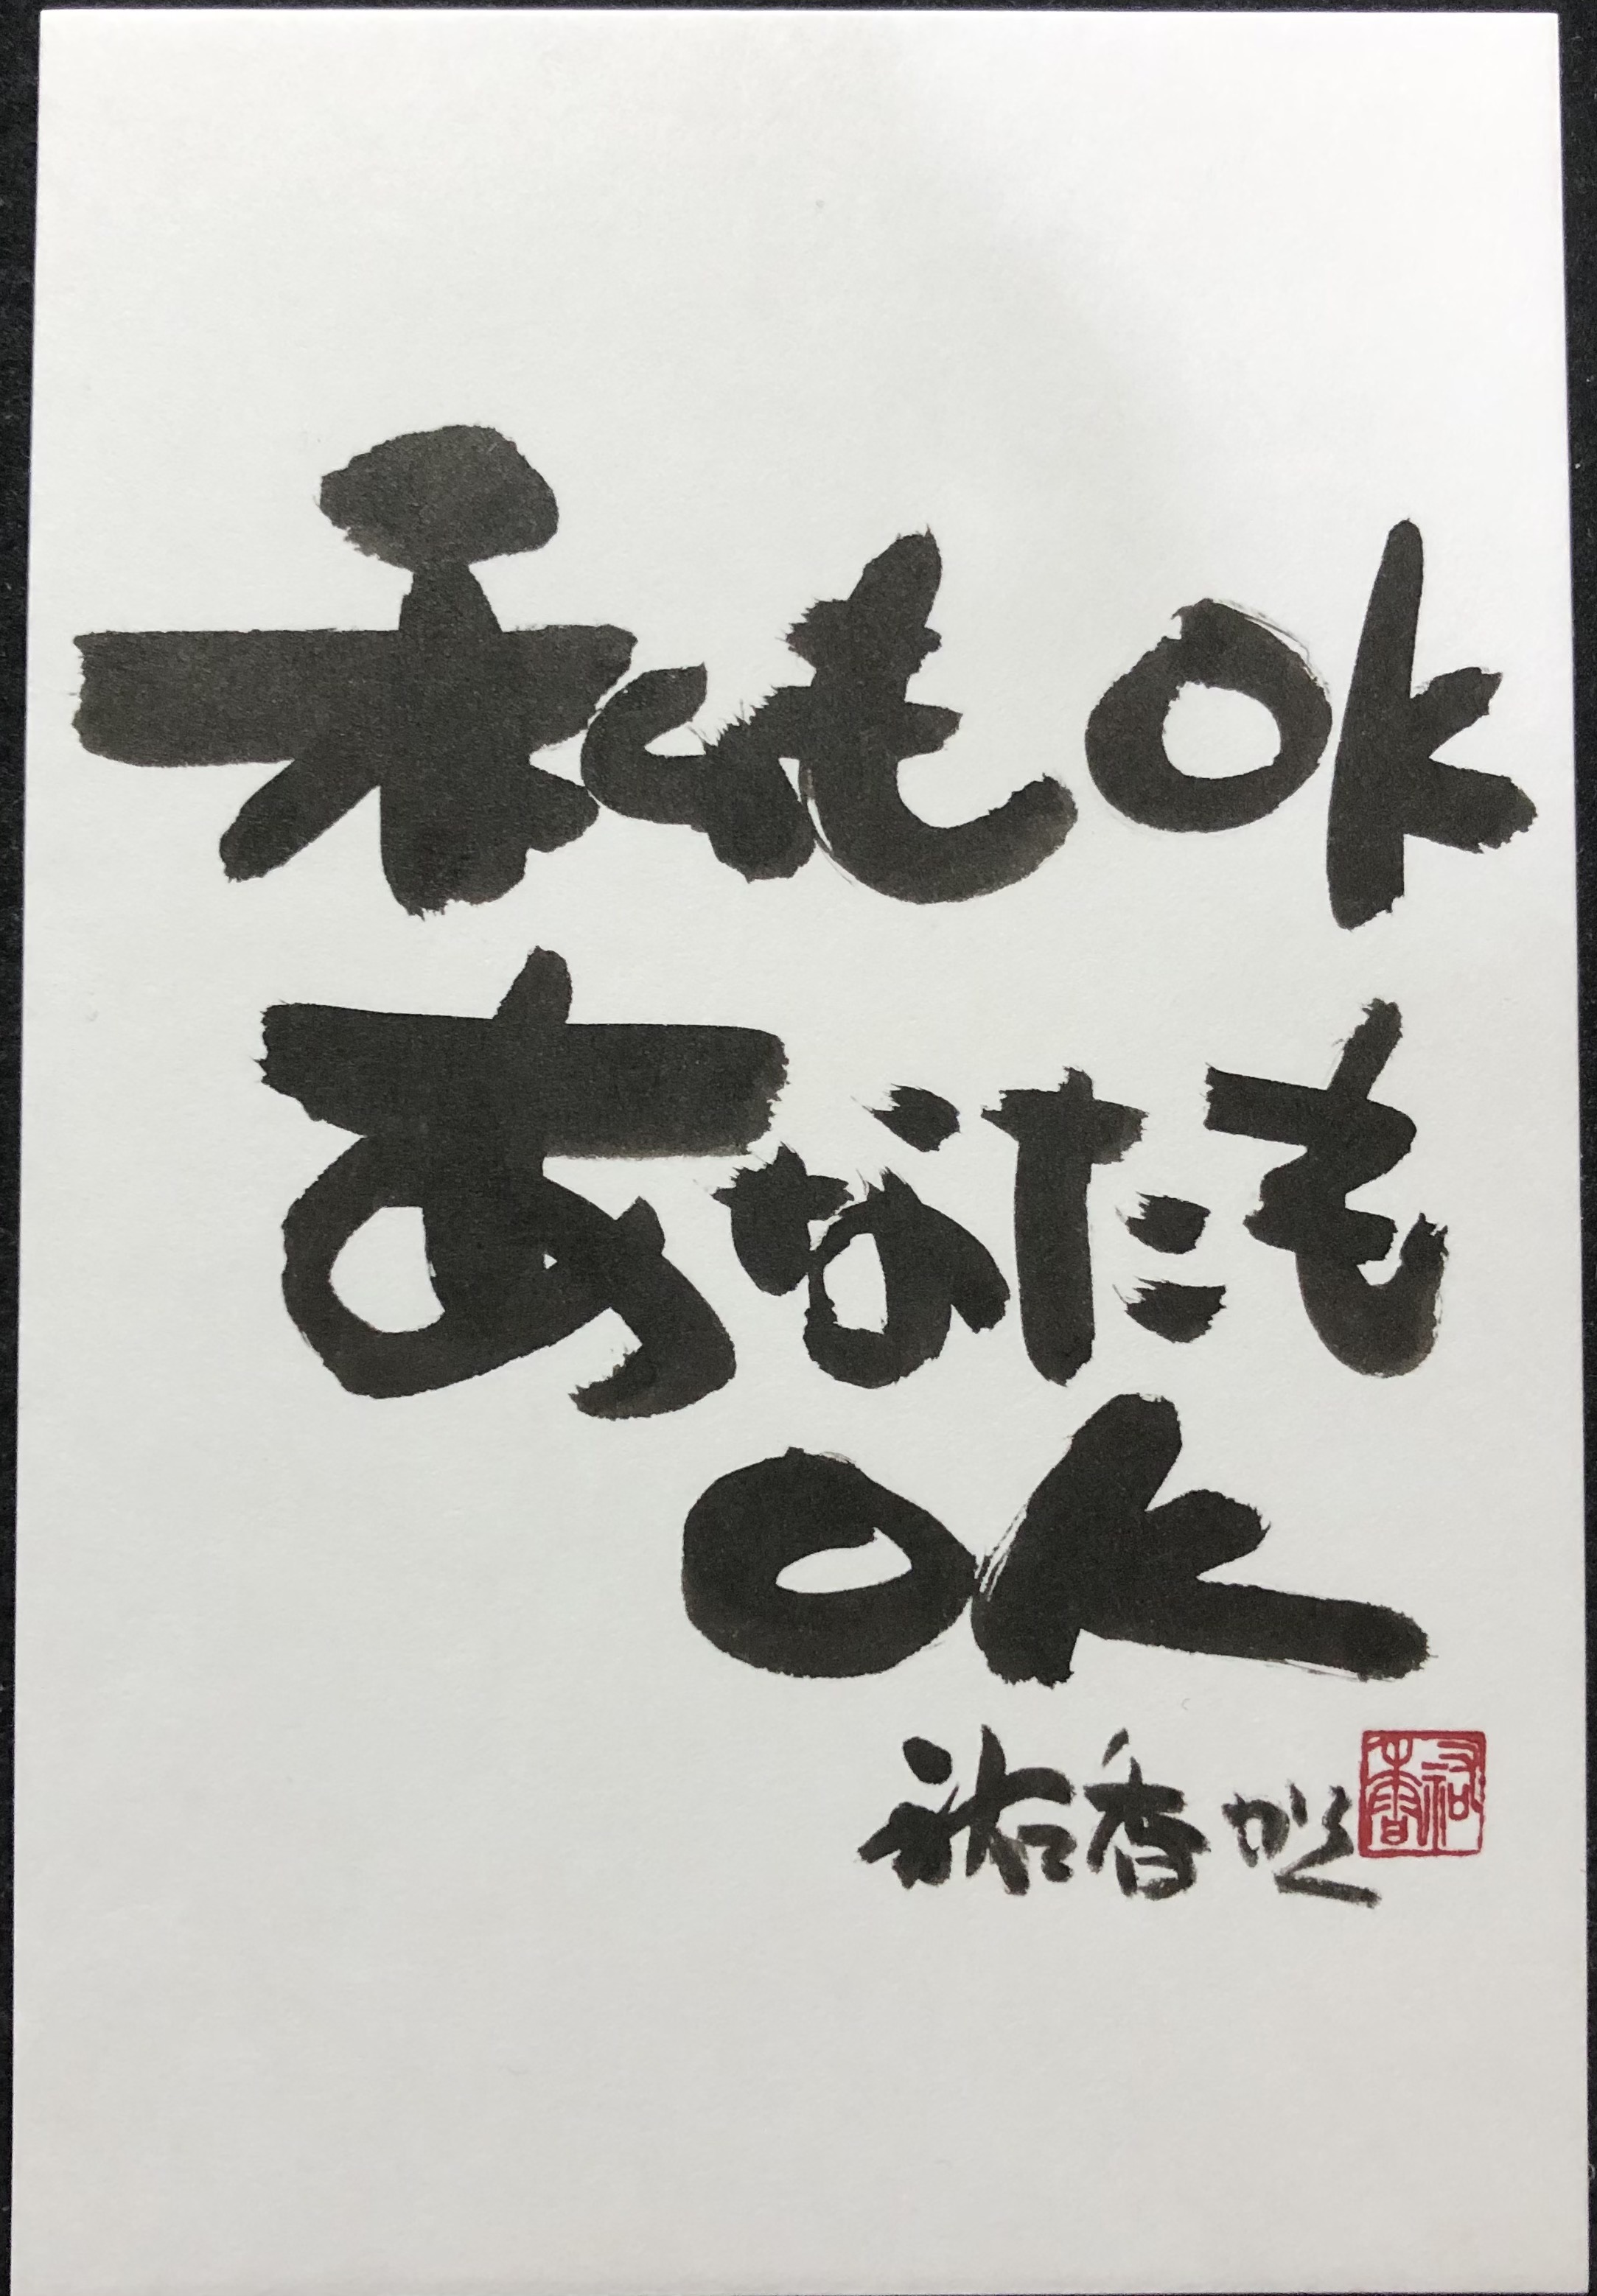 私もOK
あなたも
OK
祐香かく
祐香